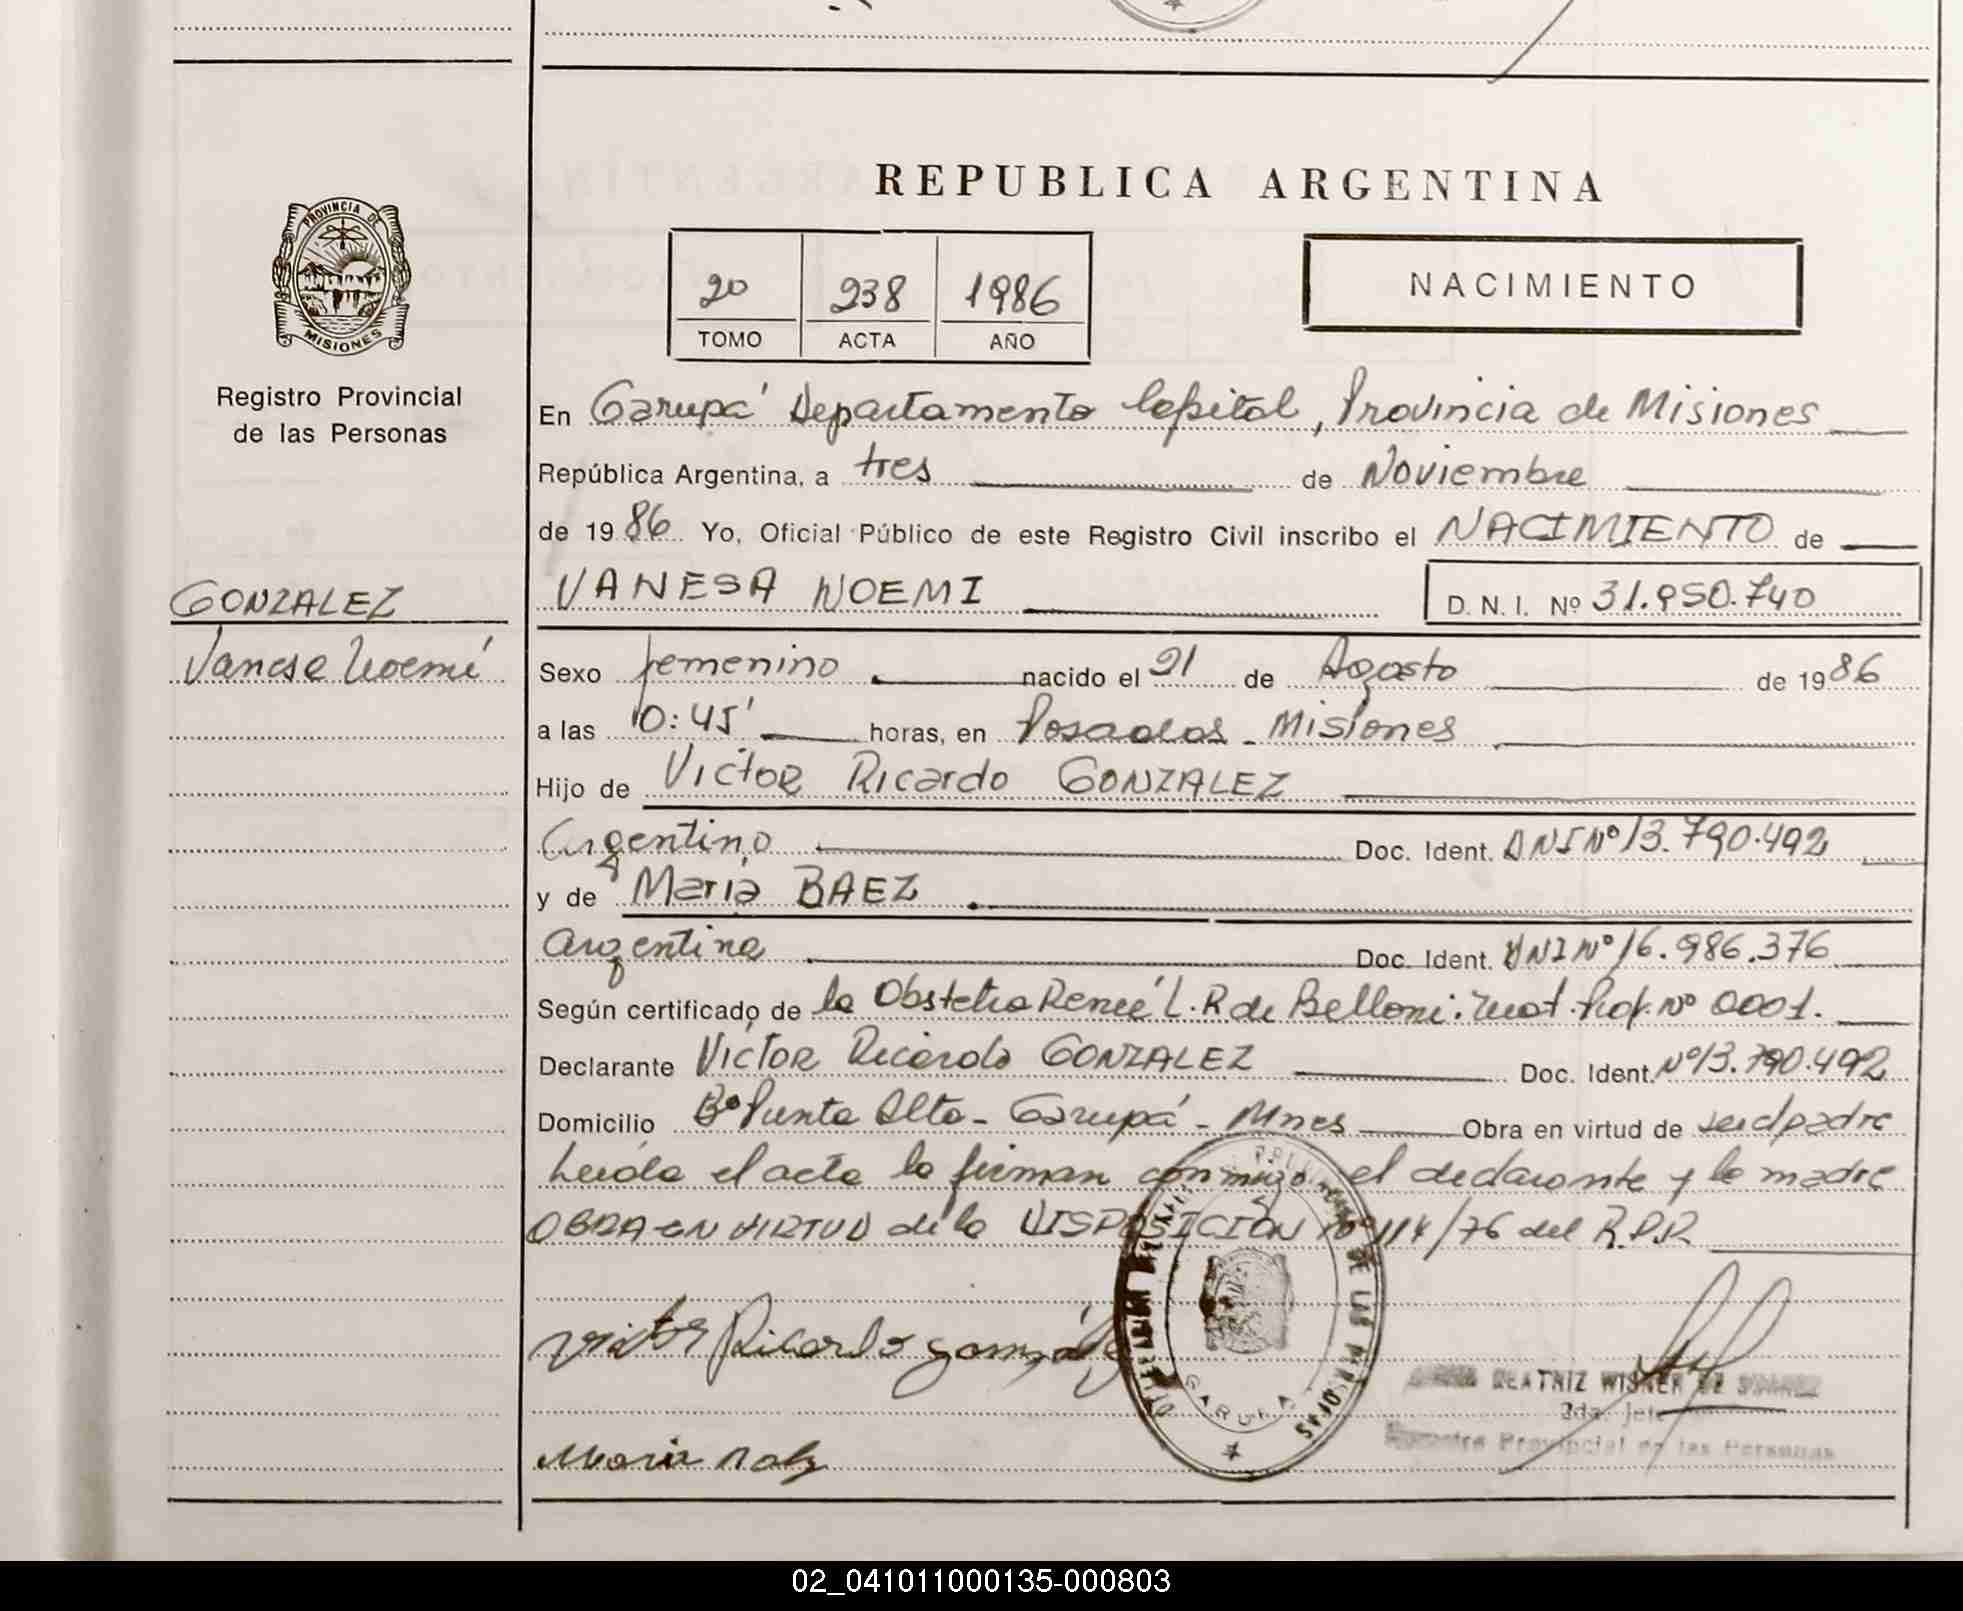 REPUBLICA ARGENTINA
PROVINCIA DE
MISIONES
Registro Provincial
de las Personas
20 238 1986
TOMO ACTA AÑO
NACIMIENTO
En Garupá Departamento Capital, Provincia de Misiones
República Argentina, a tres de Noviembre
de 1986 Yo, Oficial Público de este Registro Civil inscribo el NACIMIENTO de
GONZALEZ
Vanesa Noemí
VANESA NOEMI D.N.I. Nº 31.950.740
Sexo femenino nacido el 21 de Agosto de 1986
a las 10:45' horas, en Posadas - Misiones
Hijo de Victor Ricardo GONZALEZ
Argentino Doc. Ident. DNI Nº 13.790.492
y de Maria BAEZ
Argentina Doc. Ident. DNI Nº 16.986.376
Según certificado de la Obstetra Reneé L. R de Belloni. Mat. Prof. Nº 0001.
Declarante Victor Ricardo GONZALEZ Doc. Ident. Nº 13.790.492
Domicilio Bº Punta Alta - Garupá - Mnes Obra en virtud de ser el padre
Leída el acta la firman conmigo el declarante y la madre
OBRA EN VIRTUD de la DISPOSICION Nº 114/76 del R.P.P.
DE LAS PERSONAS
GARUPA
Victor Ricardo González
BEATRIZ WISNER DE SUAREZ
2da. Jefe
Registro Provincial de las Personas
Maria
02_041011000135-000803